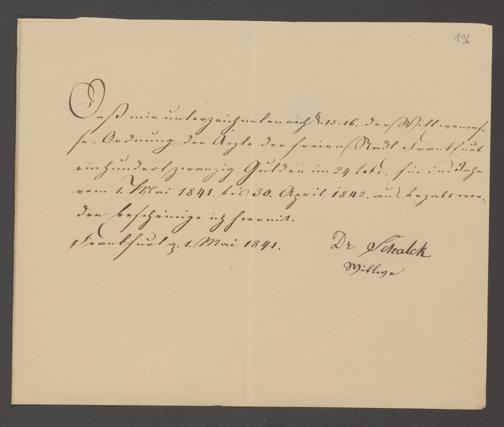 196
Daß mir unterzeichneten nach §. 15-16. der Wittwencas-
se-Ordnung der Ärzte der freien Stadt Frankfurt
einhundert zwanzig Gulden im 24 für ein Jahr
vom 1. Mai 1841 bis 30. April 1842. ausbezalt wor-
den bescheinige ich hiermit.
Frankfurt 1. Mai 1841.
Dr Schalck
Wittwe